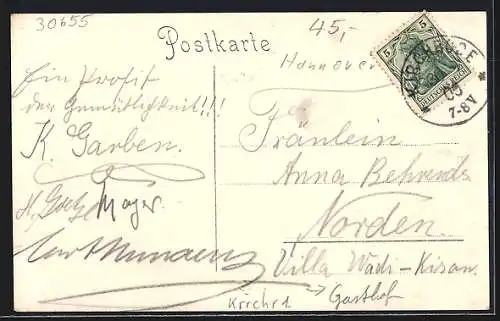 30655
45,-
Postkarte
Hannover
5
DEUTSCHES REICH
7-8V
Ein Prosit
der Gemütlichkeit!!!
K. Garben.
Mayer.
Fräulein
Anna Behrends
Norden.
Villa Wadi-Kisan.
Kirchr 1 → Gasthof